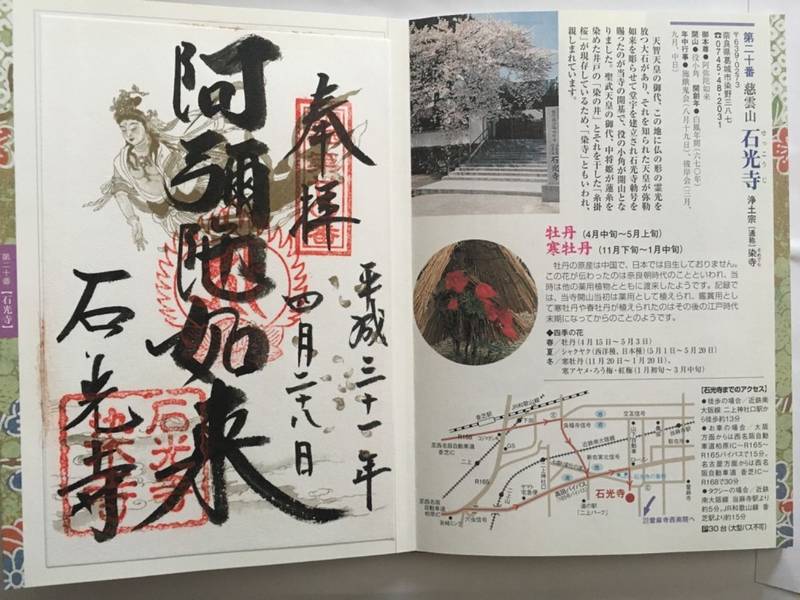 第二十番【石光寺】
奉拝
阿彌陀如来
平成三十一年
四月二十八日
石光寺
第二十番 慈雲山 石光寺 浄土宗 [通称]染寺
せっこうじ
そめでら
〒639-0273
奈良県葛城市染野三八七
☎0745・48・2031
御本尊●阿弥陀如来
開山●役小角、開創年●白鳳年間(六七〇年)
年中行事●施餓鬼会(八月十九日)、彼岸会(三月、
九月、中日)
天智天皇の御代、この地に仏の形の霊光を
放つ大石があり、それを知られた天皇が弥勒
如来を彫らせて堂宇を建立され石光寺勅号を
賜ったのが当寺の開基で、役の小角が開山とな
りました。聖武天皇の御代、中将姫が蓮糸を
染めた井戸の「染の井」とそれを干した「糸掛
桜」が現存しているため、「染寺」ともいわれ、
親しまれています。
石光寺
牡丹 (4月中旬~5月上旬)
寒牡丹 (11月下旬~1月中旬)
牡丹の原産は中国で、日本では自生しておりません。
この花が伝わったのは奈良朝時代のことといわれ、当
時は他の薬用植物とともに渡来したようです。記録で
は、当寺開山当初は薬用として植えられ、鑑賞用とし
て寒牡丹や春牡丹が植えられたのはその後の江戸時代
末期になってからのことのようです。
◆四季の花
春/牡丹(4月15日~5月3日)
夏/シャクヤク(西洋種、日本種)(5月1日~5月20日)
冬/寒牡丹(11月20日~1月20日)、
寒アヤメ・ろう梅・紅梅(1月初旬~3月中旬)
【石光寺までのアクセス】
●徒歩の場合/近鉄南
大阪線 二上神社口駅か
ら徒歩約13分
●お車の場合/大阪
方面からは西名阪自動
車道柏原IC─R165─
R165バイパスで15分。
名古屋方面からは西
名阪自動車道 香芝IC
─R168で30分
●タクシーの場合/近鉄
南大阪線 当麻寺駅より
約5分。JR和歌山線 香
芝駅より約15分
P30台(大型バス不可)
香芝駅
JR和歌山線
下田
R168
GS
至西名阪
自動車道
香芝IC
二上
近鉄南大阪線
二上神社口
R165
穴虫信号
道の駅
「二上パーク」
石光寺
當麻寺西南院へ